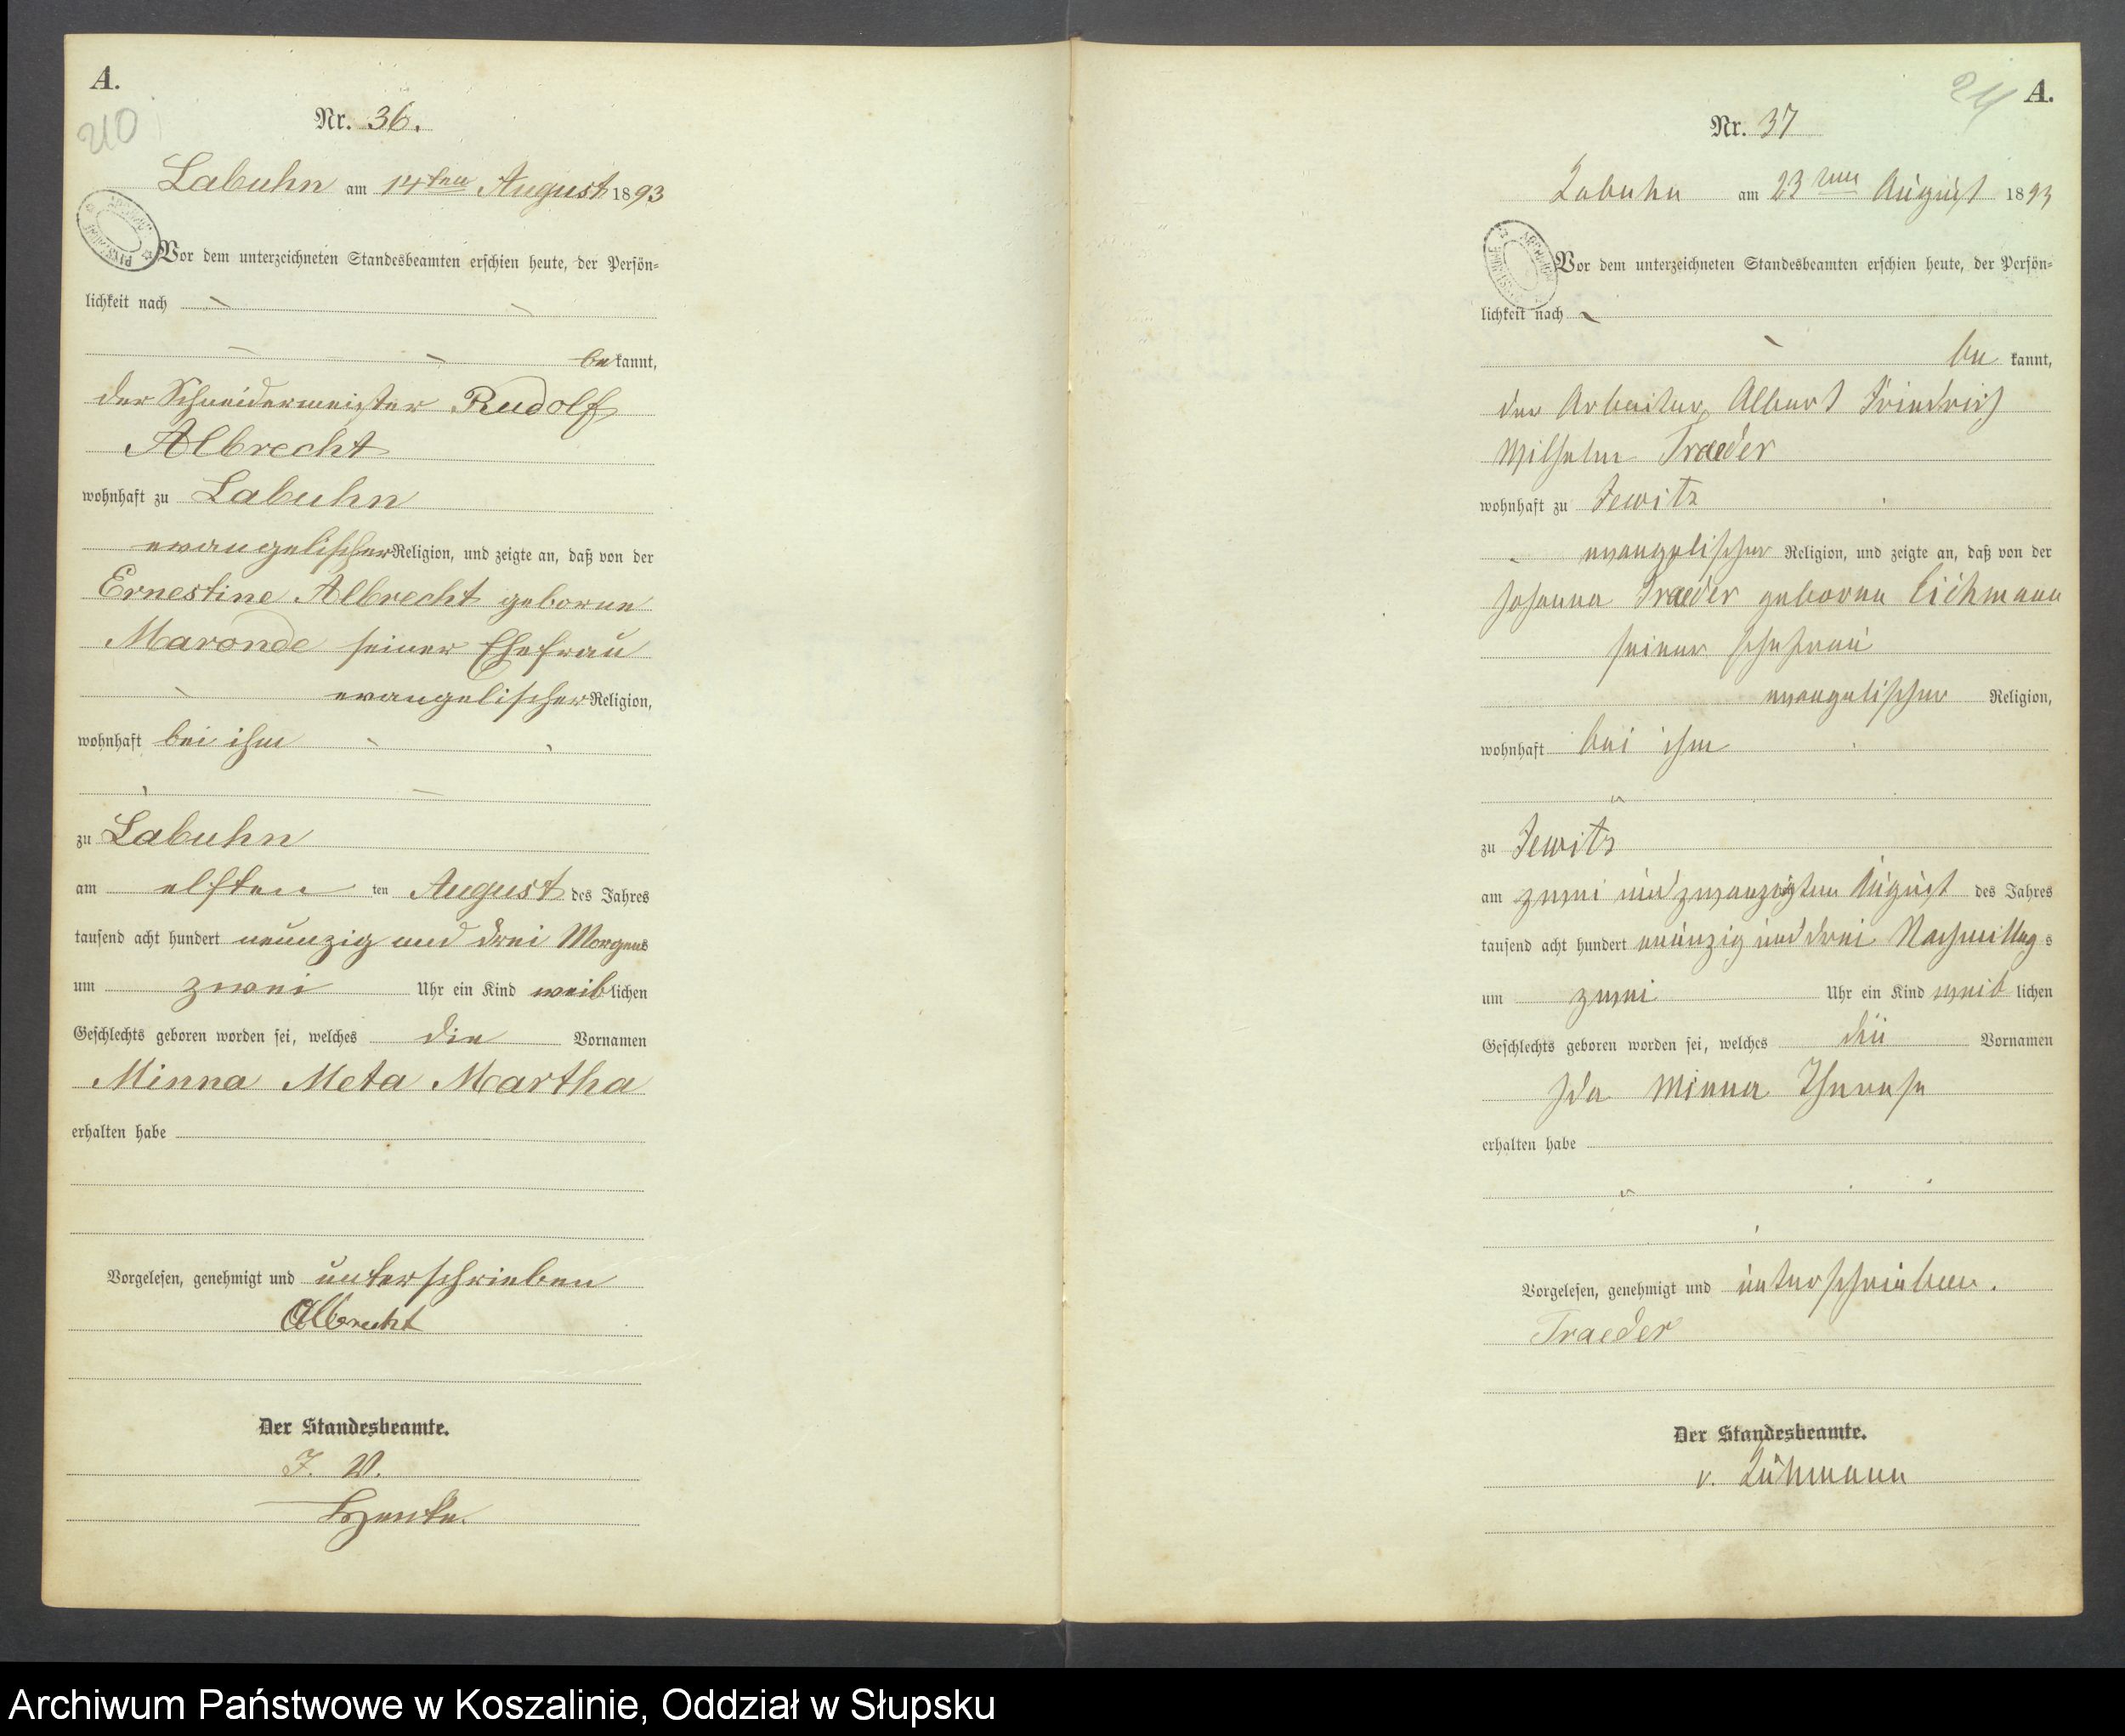 A.
Nr. 36.
Labuhn am 14ten August 1893
Vor dem unterzeichneten Standesbeamten erschien heute, der Persön=
lichkeit nach
bekannt,
der Schneidermeister Rudolf
Albrecht
wohnhaft zu Labuhn
evangelischer Religion, und zeigte an, daß von der
Ernestine Albrecht geborne
Maronde seiner Ehefrau
evangelischer Religion,
wohnhaft bei ihm
zu Labuhn
am elften ten August des Jahres
tausend acht hundert neunzig und drei Morgens
um zwei Uhr ein Kind weiblichen
Geschlechts geboren worden sei, welches die Vornamen
Minna Meta Martha
erhalten habe
Vorgelesen, genehmigt und unterschrieben
Albrecht
Der Standesbeamte.
J. V.
A.
Nr. 37
Labuhn am 23ten August 1893
Vor dem unterzeichneten Standesbeamten erschien heute, der Persön=
lichkeit nach
be kannt,
der Arbeiter Albert Friedrich
Wilhelm Traeder
wohnhaft zu Jewitz
evangelischer Religion, und zeigte an, daß von der
Johanna Traeder geborene Eichmann
seiner Ehefrau
evangelischer Religion,
wohnhaft bei ihm
zu Jewitz
am zwei und zwanzigten August des Jahres
tausend acht hundert neunzig und drei Nachmittag s
um zwei Uhr ein Kind weib lichen
Geschlechts geboren worden sei, welches die Vornamen
Ida Minna Therese
erhalten habe
Vorgelesen, genehmigt und unterschrieben.
Traeder
Der Standesbeamte.
v. Lühmann
Archiwum Państwowe w Koszalinie, Oddział w Słupsku